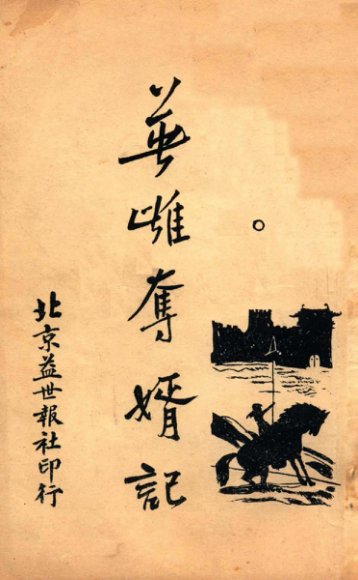 英雌奪婿記
北京益世報社印行